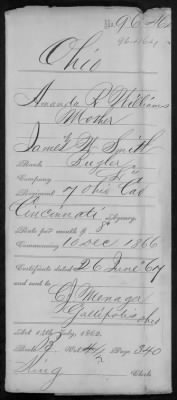 No. 96
Ohio
Amanda R Williams
Mother
James W Smith
Rank Bugler
Company F
Regiment 7 Ohio Cav
Cincinnati Agency.
Rate per month $ 8
Commencing 16 Dec 1866
Certificate dated 26 June 67
and sent to
C J Menager
Gallipolis Ohio
Act 14th July, 1862.
Book Vol. Page 340
King Clerk.